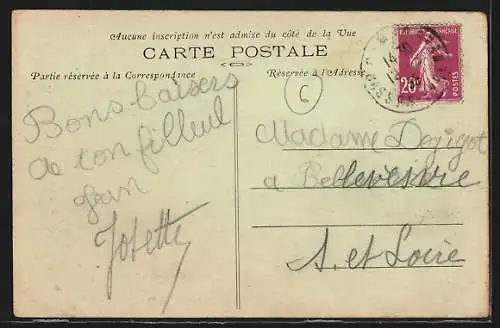 Aucune inscription n'est admise du côté de la Vue
CARTE POSTALE
Partie réservée à la Correspondance
Réservée à l'Adresse
C
Bons baisers
de ton filleul
Jean
Josette
Madame
a Bellevesvre
S. et Loire
20c
POSTES